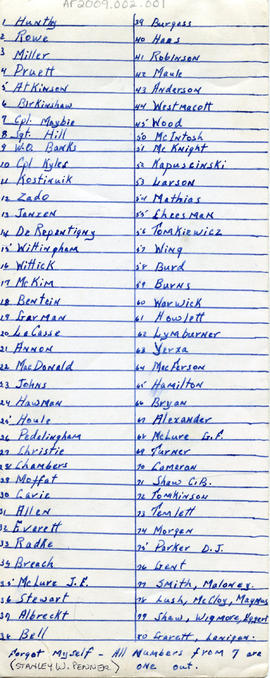 AF2009.002.001
1 Huntly
2 Rowe
3 Miller
4 Pruett
5 Atkinson
6 Birkinshaw
7 Cpl. Maybie
8 Sgt. Hill
9 W.O. Banks
10 Cpl Kyles
11 Kostinuik
12 Zado
13 Janzen
14 De Repentigny
15 Wittingham
16 Wittick
17 McKim
18 Bentein
19 Garman
20 LeCasse
21 Annon
22 MacDonald
23 Johns
24 Hawman
25 Houle
26 Pedelingham
27 Christie
28 Chambers
29 Moffat
30 Carie
31 Allen
32 Everett
33 Radke
34 Breach
35 McLure J.E.
36 Stewart
37 Albreckt
38 Bell
39 Burgess
40 Haas
41 Robinson
42 Maule
43 Anderson
44 Westmacott
45 Wood
50 McIntosh
51 McKnight
52 Kapuscinski
53 Larson
54 Mathias
55 Cheesman
56 Tomkiewicz
57 Wing
58 Burd
59 Burns
60 Warwick
61 Howlett
62 Lymburner
63 Yerxa
64 MacPerson
65 Hamilton
66 Bryan
67 Alexander
68 McLure G.F.
69 Turner
70 Cameron
71 Shaw C.B.
72 Tomkinson
73 Temlett
74 Morgan
75 Parker D.J.
76 Gent
77 Smith, Maloney.
78 Lush, McCloy, Magnus
79 Shaw, Wigmore, Eggert
80 Garett, Lanigan.
Forgot Myself - All Numbers from 7 are
(STANLEY W. PENNER) one out.